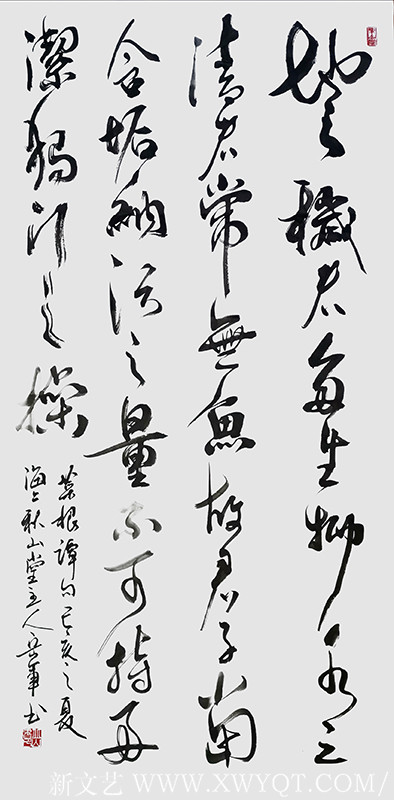 地之穢者多生物水之
清者常無魚故君子當
含垢納污之量不可持好
潔獨行之操
菜根譚句己亥之夏
海上秋山堂主人岳軍书
新文艺 WWW.XWYQT.COM